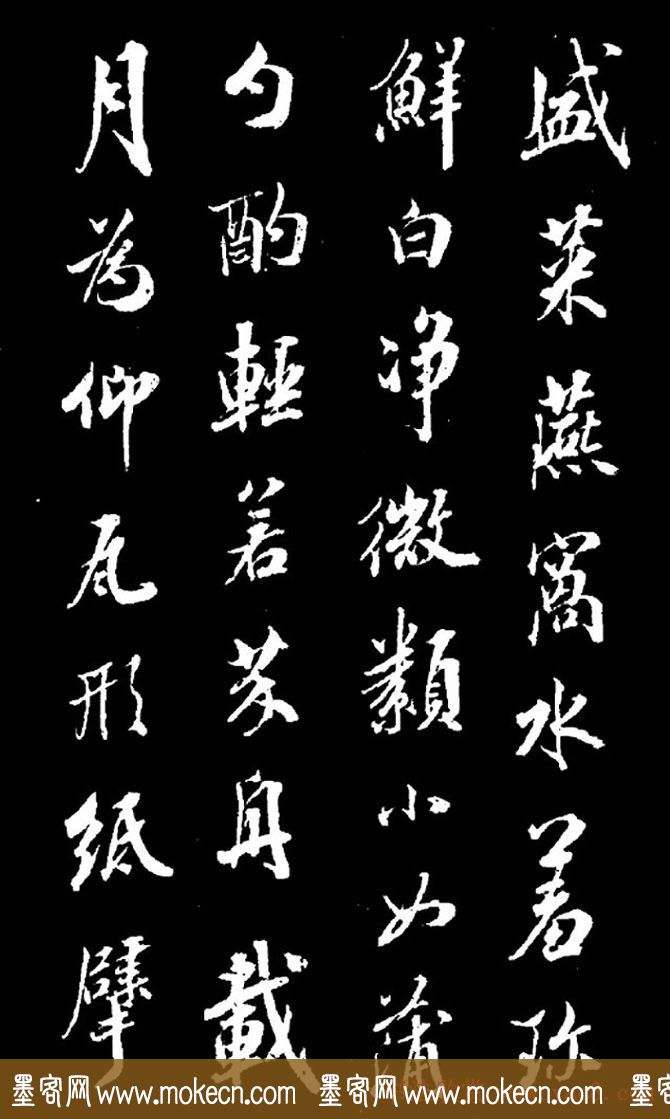 盛菜燕窩水着弥
鮮白净微類小如蒲
勺酌輕若芥舟載
月為仰瓦形紙擘
墨客网 www.mokecn.com 墨客网 www.mokecn.com 墨客